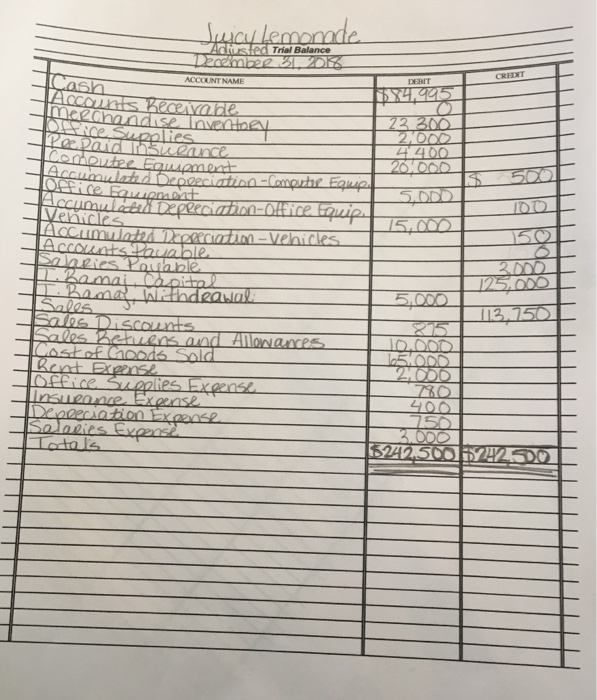 Juicy Lemonade
Adjusted Trial Balance
December 31, 2018
ACCOUNT NAME DEBIT CREDIT
Cash $84,995
Accounts Receivable 0
Merchandise Inventory 23,300
Office Supplies 2,000
Prepaid Insurance 4,400
Computer Equipment 20,000
Accumulated Depreciation-Computer Equip. $ 500
Office Equipment 5,000
Accumulated Depreciation-Office Equip. 100
Vehicles 15,000
Accumulated Depreciation-Vehicles 150
Accounts Payable 0
Salaries Payable 3,000
T. Ramaj, Capital 125,000
T. Ramaj, Withdrawal 5,000
Sales 113,750
Sales Discounts 875
Sales Returns and Allowances 10,000
Cost of Goods Sold 65,000
Rent Expense 2,000
Office Supplies Expense 780
Insurance Expense 400
Depreciation Expense 750
Salaries Expense 3,000
Totals $242,500 $242,500